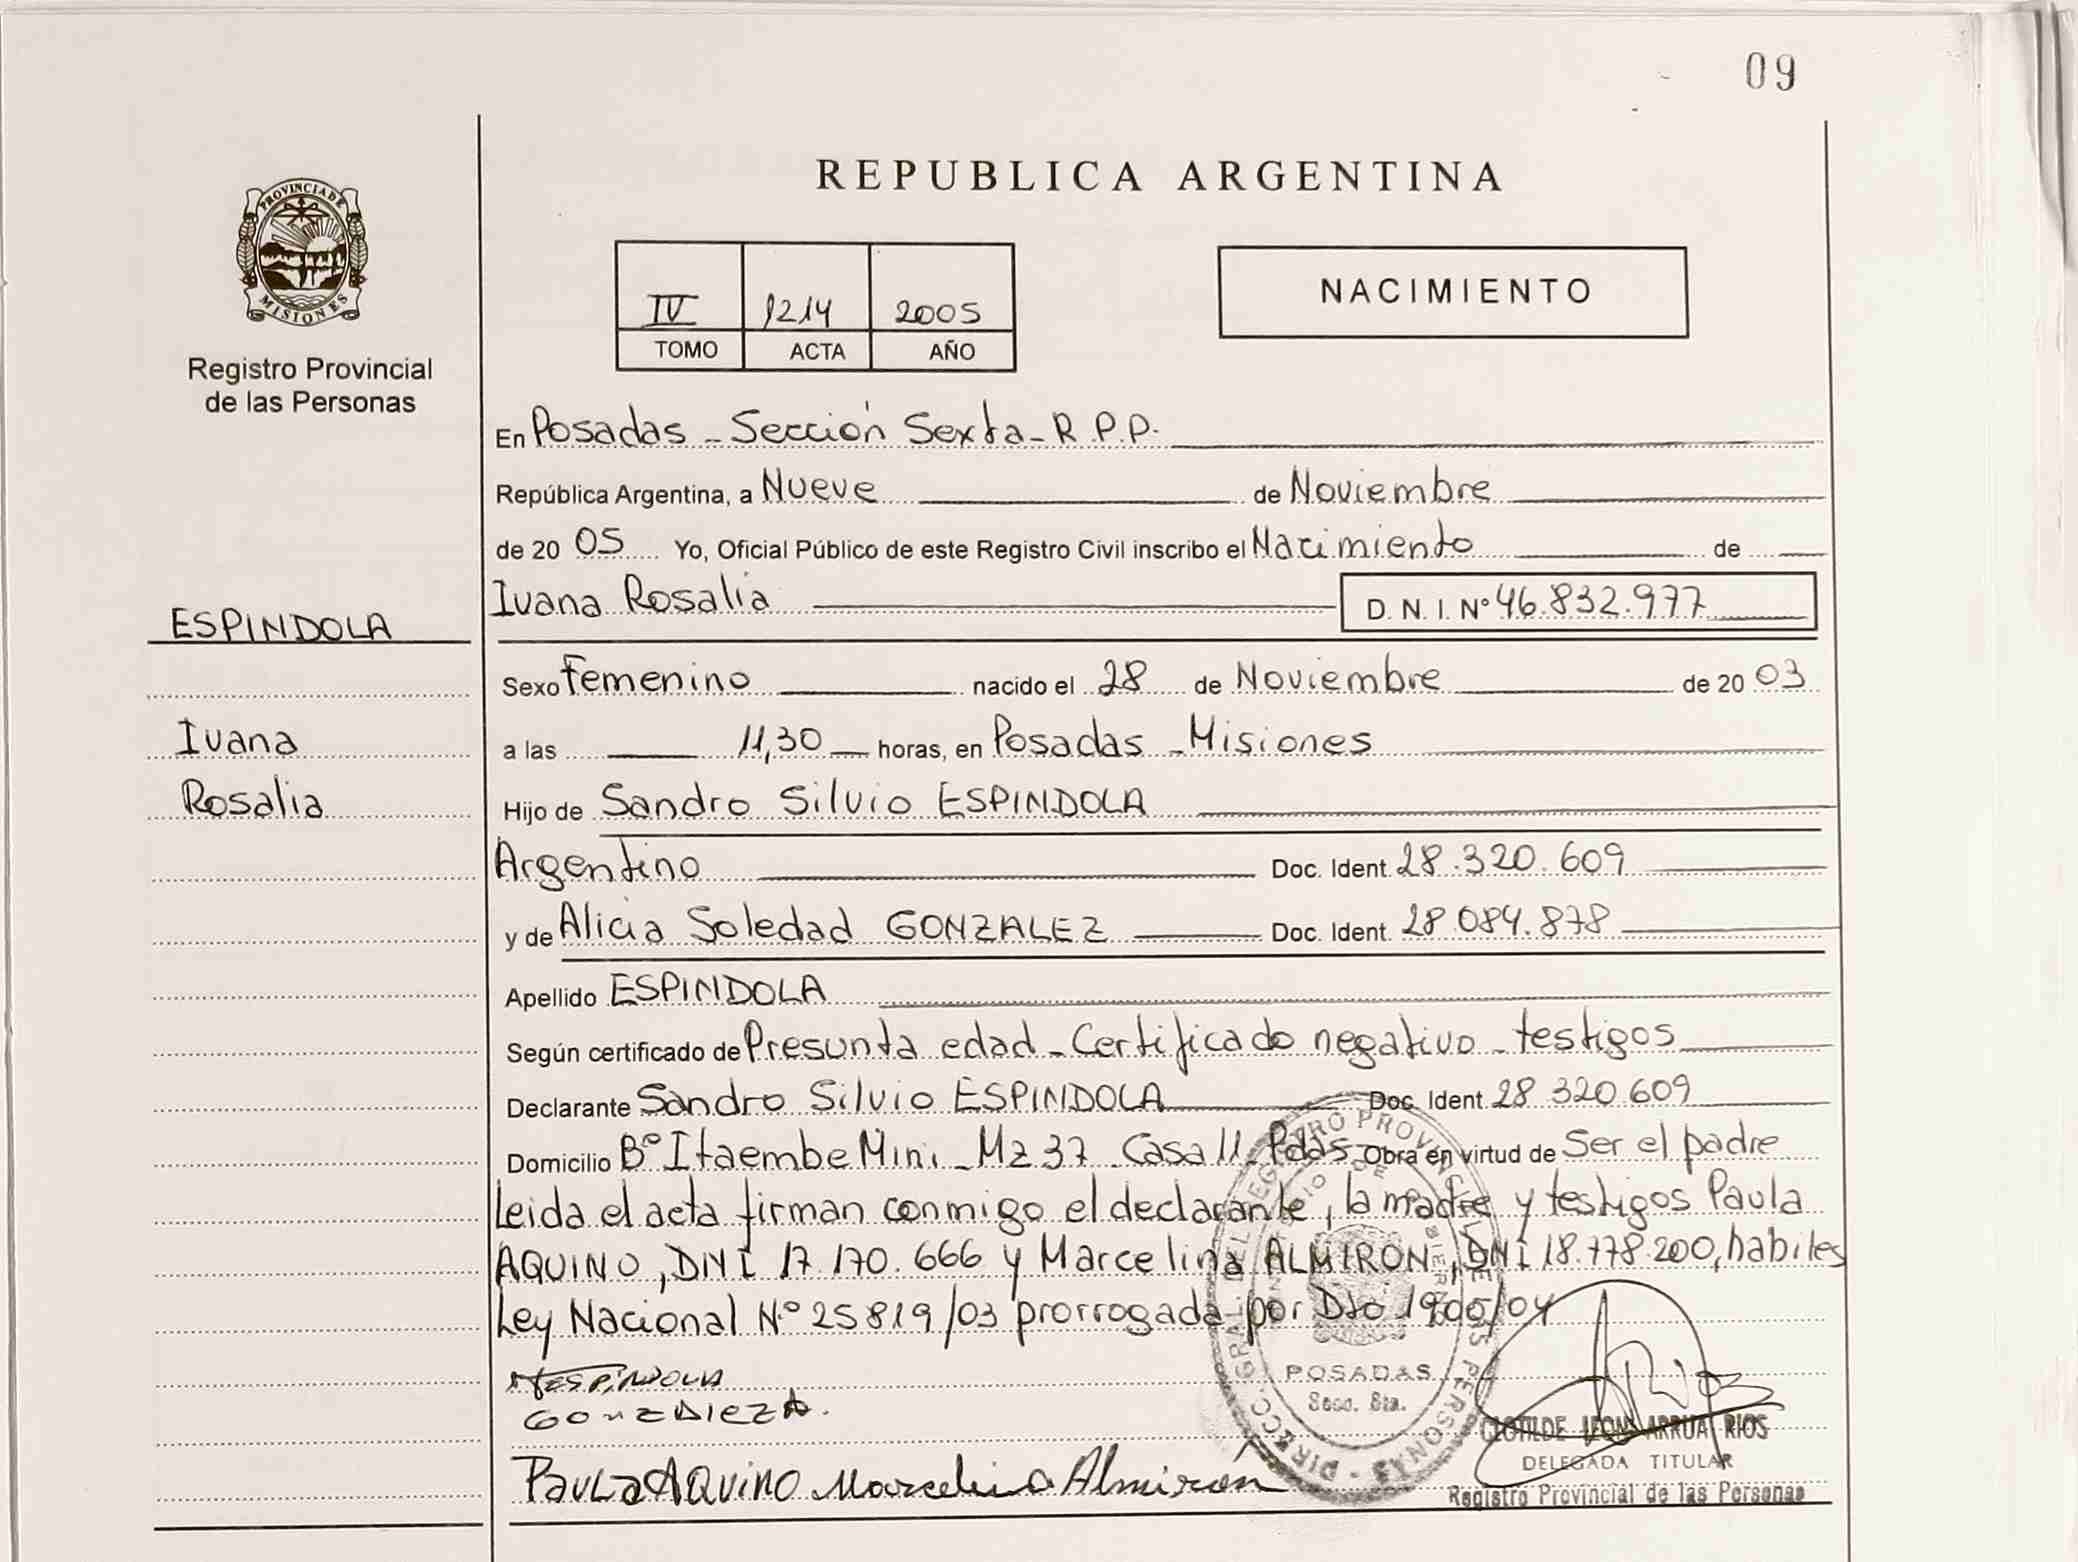 09
REPUBLICA ARGENTINA
PROVINCIA DE
MISIONES
Registro Provincial
de las Personas
IV 1214 2005
TOMO ACTA AÑO
NACIMIENTO
En Posadas - Sección Sexta - R.P.P.
República Argentina, a Nueve de Noviembre
de 20 05 Yo, Oficial Público de este Registro Civil inscribo el Nacimiento de
Ivana Rosalia D. N. I. Nº 46.832.977
ESPINDOLA
Sexo Femenino nacido el 28 de Noviembre de 20 03
Ivana
a las 11,30 horas, en Posadas - Misiones
Rosalia
Hijo de Sandro Silvio ESPINDOLA
Argentino Doc. Ident. 28.320.609
y de Alicia Soledad GONZALEZ Doc. Ident. 28.084.878
Apellido ESPINDOLA
Según certificado de Presunta edad - Certificado negativo - testigos
Declarante Sandro Silvio ESPINDOLA Doc. Ident. 28 320 609
Domicilio Bº Itaembe Mini - Mz 37 Casa 11 - Pdas - Obra en virtud de Ser el padre
Leida el acta firman conmigo el declarante, la madre y testigos Paula
AQUINO, DNI 17.170.666 y Marcelina ALMIRON, DNI 18.778.200, habiles
Ley Nacional Nº 25819/03 prorrogada por Dto 1900/04
ESPINDOLA
GONZALEZ A.
PAULA AQUINO Marcelina Almirón
DIRECC. GRAL. DEL REGISTRO PROVINCIAL DE LAS PERSONAS
POSADAS
Secc. 6ta.
CLOTILDE LEONI ARRUA RIOS
DELEGADA TITULAR
Registro Provincial de las Personas